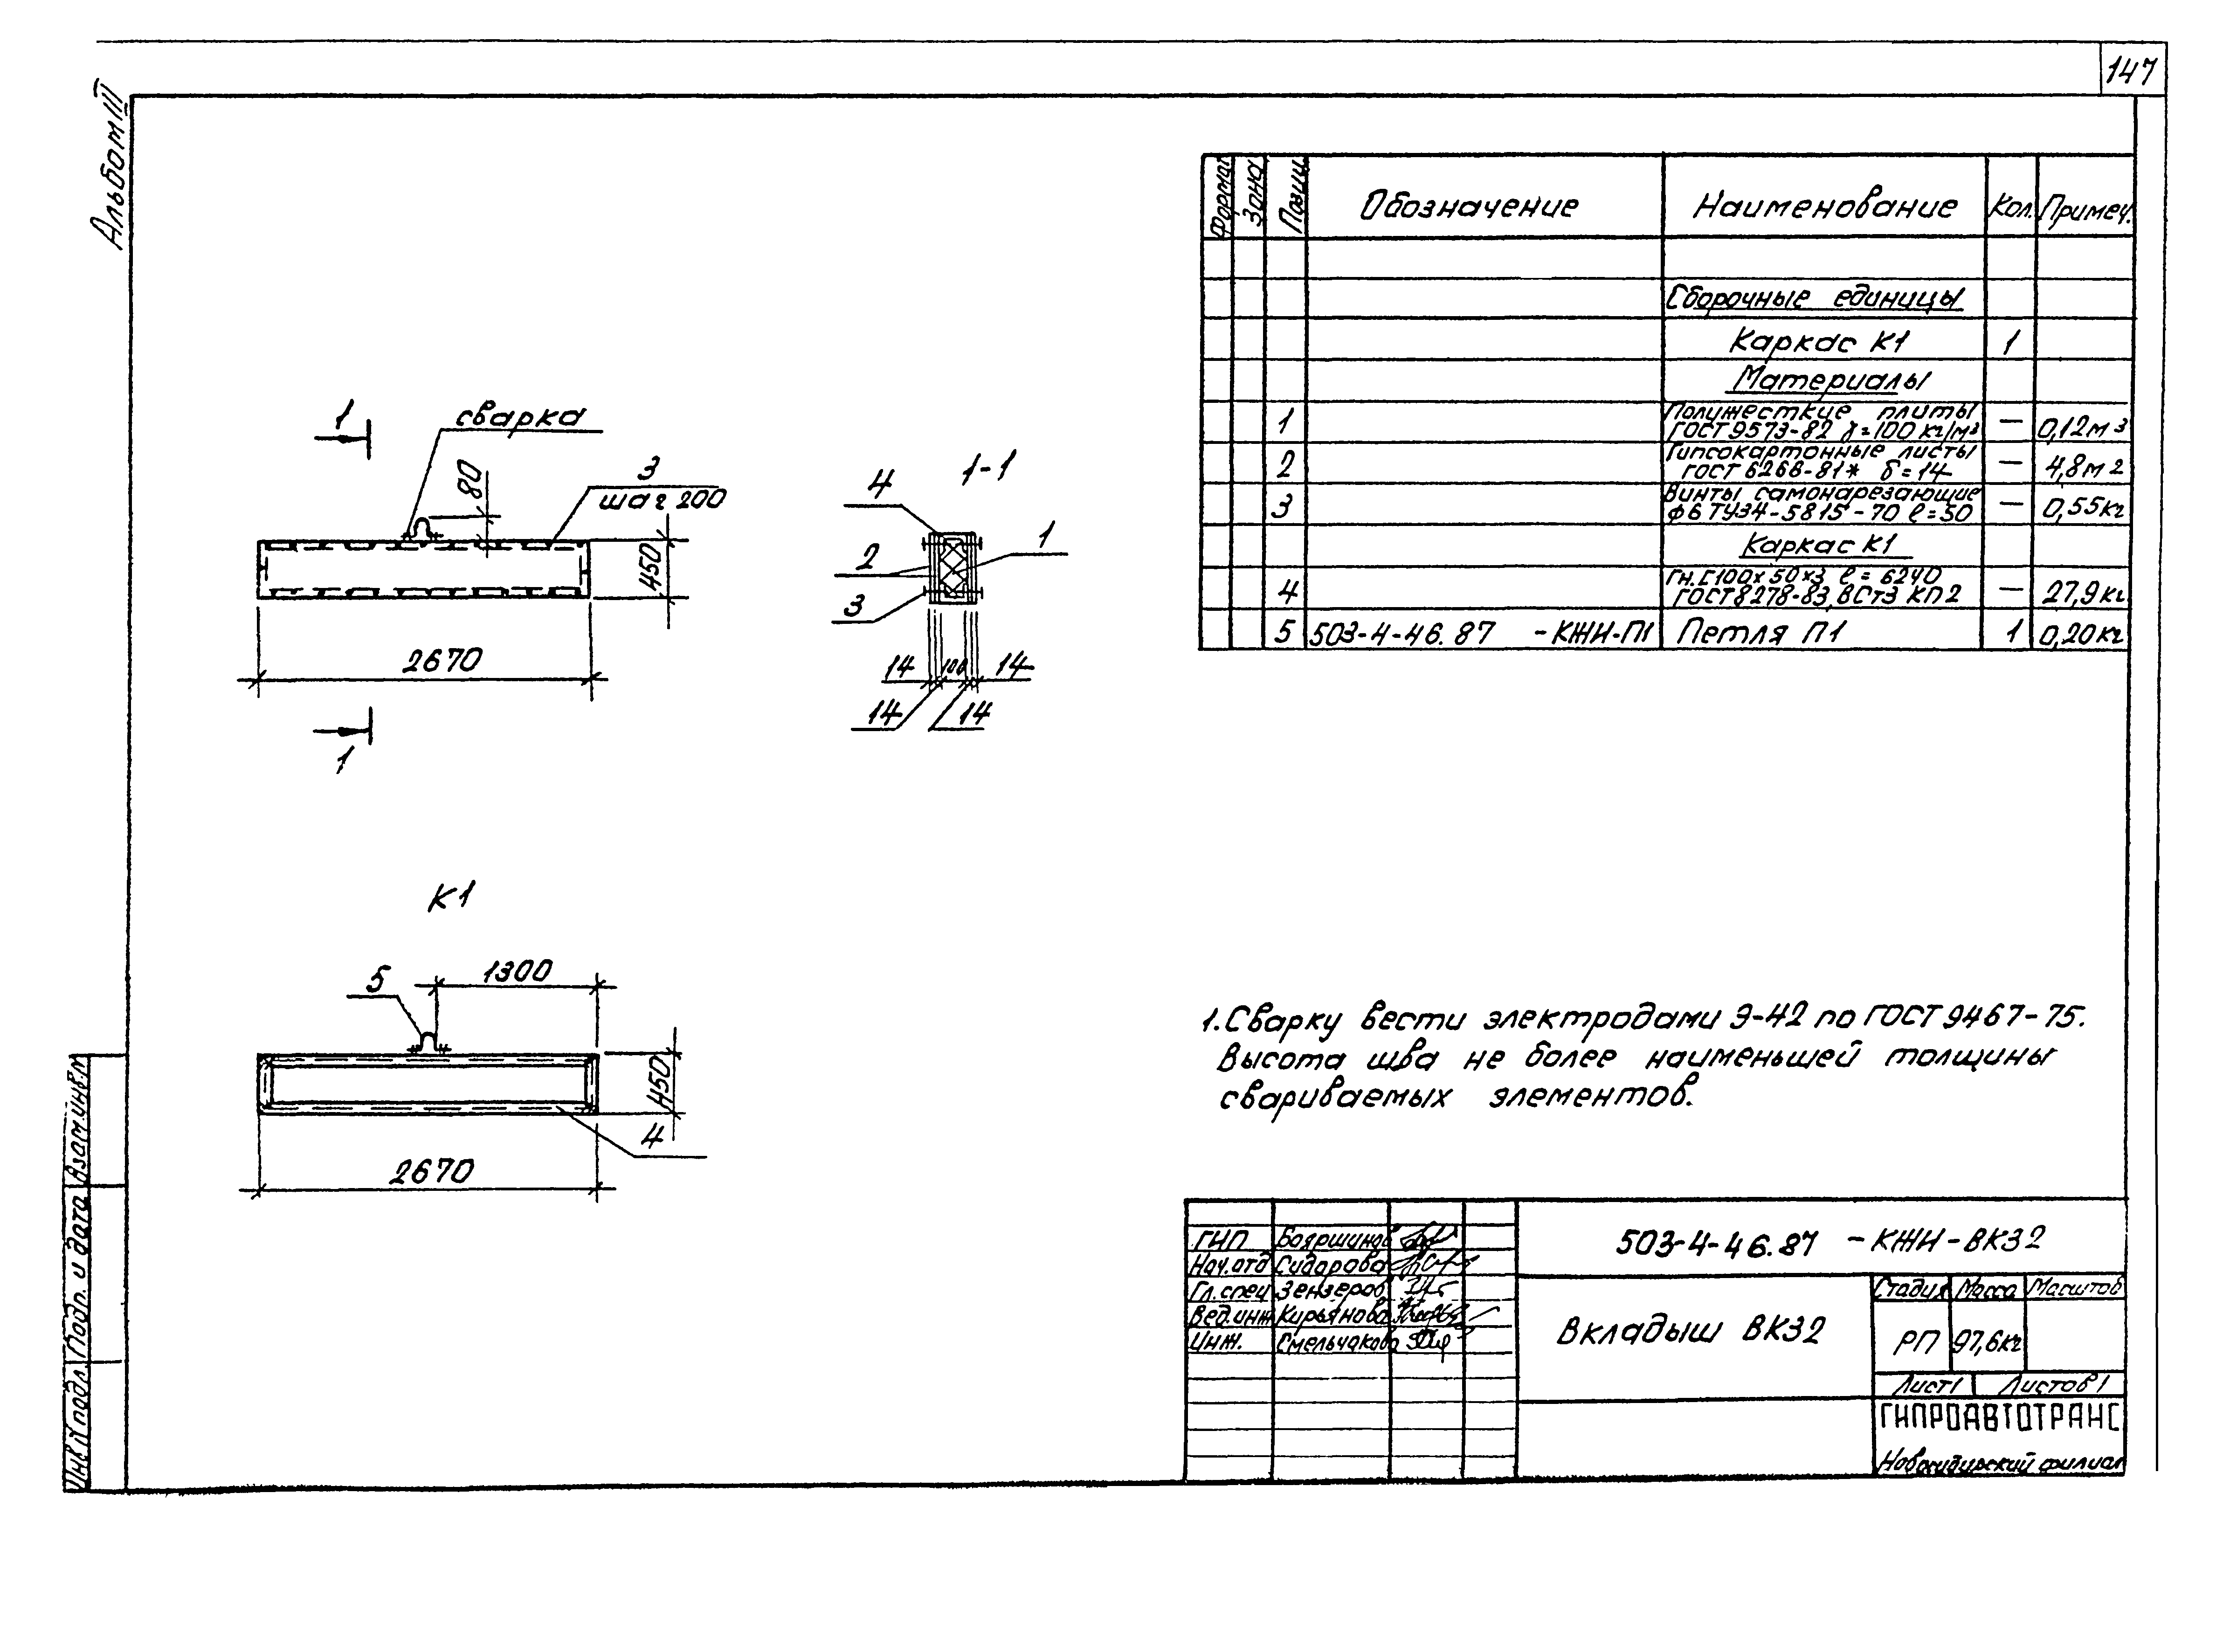 147
Альбом III
Формат Зона Позиц. Обозначение Наименование Кол. Примеч.
Сборочные единицы
Каркас К1 1
Материалы
1 Полужесткие плиты
ГОСТ 9573-82 γ=100 кг/м³ — 0,12 м³
2 Гипсокартонные листы
ГОСТ 6266-81* δ=14 — 4,8 м2
3 Винты самонарезающие
ф6 ТУ34-5815-70 ℓ=50 — 0,55 кг
Каркас К1
4 Гн.[100х50х3 ℓ=6240
ГОСТ 8278-83, ВСт3 КП2 — 27,9 кг
5 503-4-46.87 -КЖИ-П1 Петля П1 1 0,20 кг
1
сварка
80
3
шаг 200
450
2670
1
1-1
4
1
2
3
14 100 14
14 14
К1
5
1300
450
4
2670
1. Сварку вести электродами Э-42 по ГОСТ 9467-75.
Высота шва не более наименьшей толщины
свариваемых элементов.
ГИП Бояршинов
Нач.отд Сидорова
Гл.спец Зензеров
Вед.инж Кирьянова
Инж. Смельчакова
503-4-46.87 -КЖИ-ВК32
Вкладыш ВК32
Стадия Масса Масштаб
РП 97,6кг
Лист 1 Листов 1
ГИПРОАВТОТРАНС
Новосибирский филиал
Взам.инв.№
Подп. и дата
Инв.№ подл.